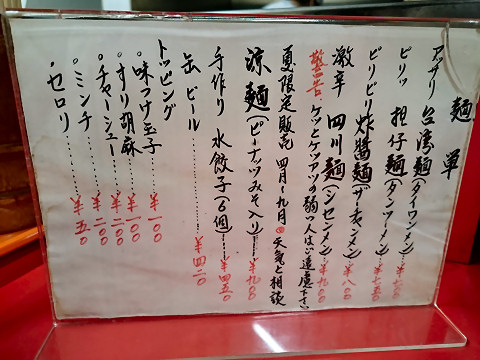 麺単
アッサリ 台湾麺(タイワンメン)…¥七〇〇
ピリッ 担仔麺(タンツーメン)…¥七五〇
ピリピリ 炸醤麺(ザーヂャンメン)…¥八〇〇
激辛 四川麺(シセンメン)…¥九〇〇
警告 ケツとケツアツの弱い人はご遠慮下さい
夏限定販売 四月〜九月 天気と相談
涼麺(ピーナッツみそ入り)…¥九〇〇
手作り 水餃子(6個)……¥四五〇
缶ビール……¥四二〇
トッピング
。味つけ玉子……¥一〇〇
。すり胡麻……¥一〇〇
。チャーシュー……¥二〇〇
。ミンチ……¥一〇〇
・セロリ……¥五〇